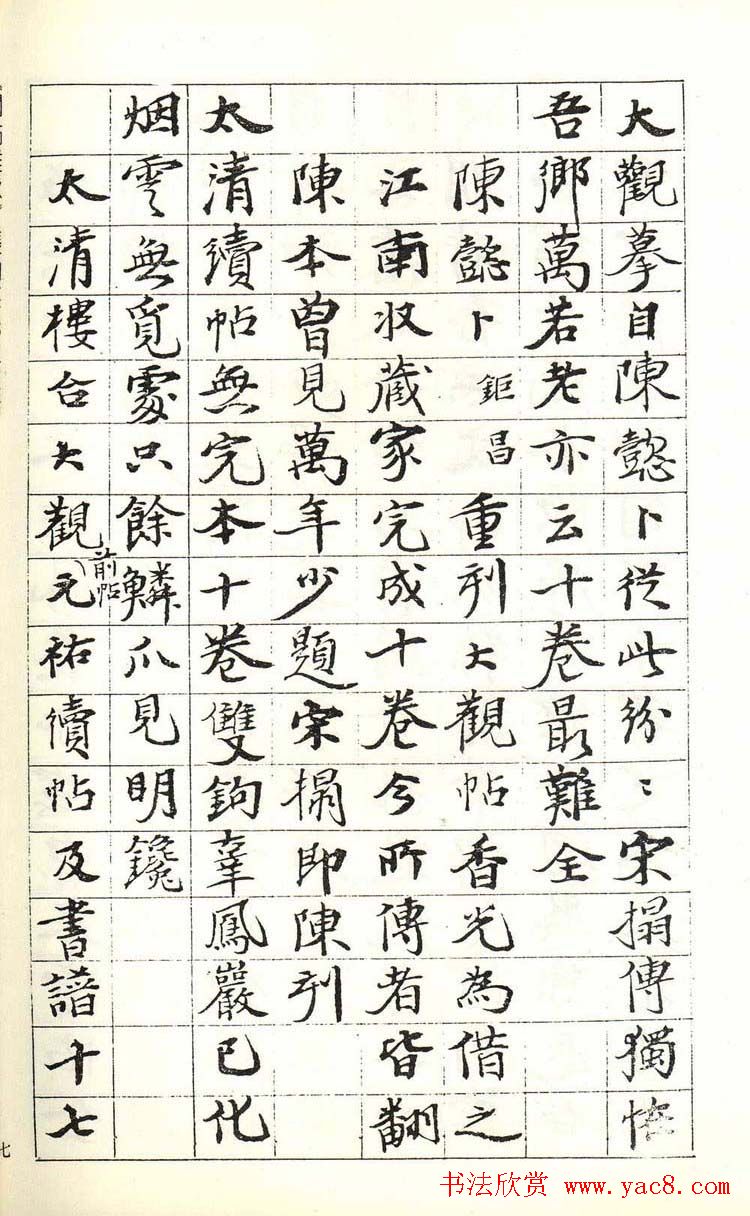 大觀摹自陳懿卜從此紛〻宋搨傳獨怪
吾鄉萬若老亦云十卷最難全
陳懿卜鉅昌重刊大觀帖香光為借之
江南收藏家完成十卷今所傳者皆翻
陳本曾見萬年少題宋搨即陳刊
太清續帖無完本十卷雙鉤韋鳳巖已化
烟雲無覓處只餘鱗爪見明鑱
太清樓合大觀前帖元祐續帖及書譜十七
七
书法欣赏 www.yac8.com